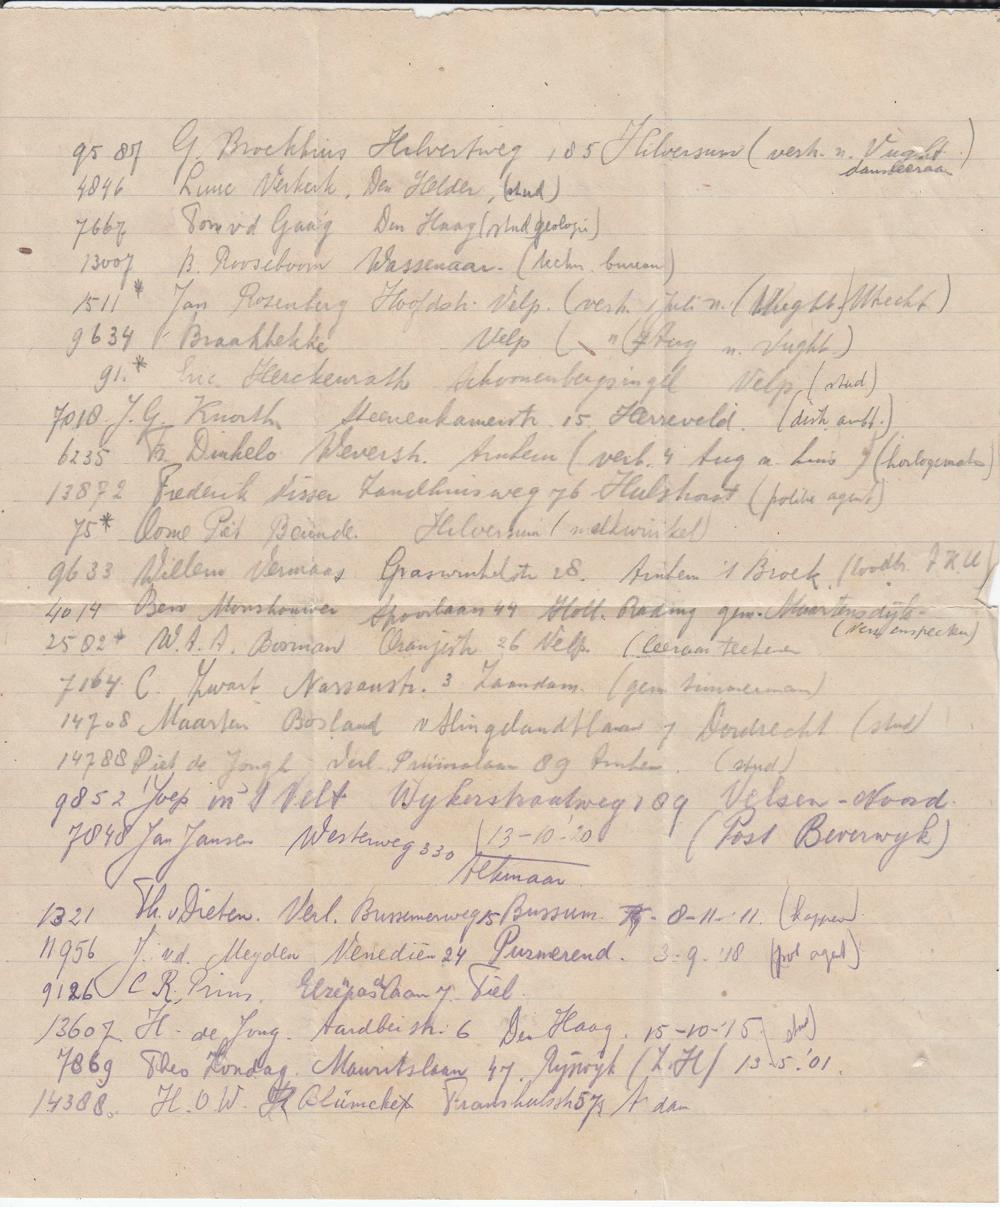 9587 G. Brockhuis Hilvertweg 185 Hilversum (vertr. n. Vught)
dansleeraar
4846 Verkerk, Den Helder, (stud)
7667 Tom vd Gaag Den Haag (stud geologie)
13007 B. Rooseboom Wassenaar. (techn. bureau)
1511 * Jan Rosenberg Hoofdstr. Velp. (vertr. 1 Juli n. (Vught) Utrecht)
9634 Braakhekke Velp ( " Aug n. Vught)
91. * Eric Herckenrath Schoonenbergsingel Velp, (stud)
7018. J.G. Knorth Steenenkamerstr. 15. Herreveld. (distr. ambt.)
6235 Dinkelo Weverstr. Arnhem (vertr. 4 Aug n. huis) (horlogemaker)
13872 Frederik Visser Zandhuisweg 76 Hulshorst (politie agent)
75 * Oome Piet Beunde. Hilversum (melkwinkel)
9633 Willem Vermaas Graswinkelstr 28. Arnhem 't Broek.
4014 Ben Monshouwer Spoorlaan 44 Holl. Rading gem. Maartensdijk
2582 * W.A.A. Bosman Oranjestr 26 Velp. (leeraar teekenen
7164. C. Zwart Nassaustr. 3 Zaandam. (gem. timmerman)
14708 Maarten Bosland v Slingelandtlaan 7 Dordrecht (stud)
14788 Piet de Jongh Verl. 89 Arnhem. (stud)
9852 Joep in 't Velt Wijkerstraatweg 189 Velsen-Noord.
7848 Jan Jansen Westerweg 330 13-10-'20 (Post Beverwijk)
Alkmaar
1321 Th. v Dieten. Verl. Bussemerweg 15 Bussum. 8-11-'11. (kapper)
11956 J. vd. Meyden Venediën 24 Purmerend. 3-9-'18 (pol agent)
9126 C R. Prins. 7. Tiel.
13607 H. de Jong. Aardbeistr. 6 Den Haag. 15-10-'15 stud)
7869 Theo Zondag. Mauritslaan 47. Rijswijk (Z.H) 13-5-'01.
14388. H.O.W. Blümcke Franshalsstr 57 A'dam